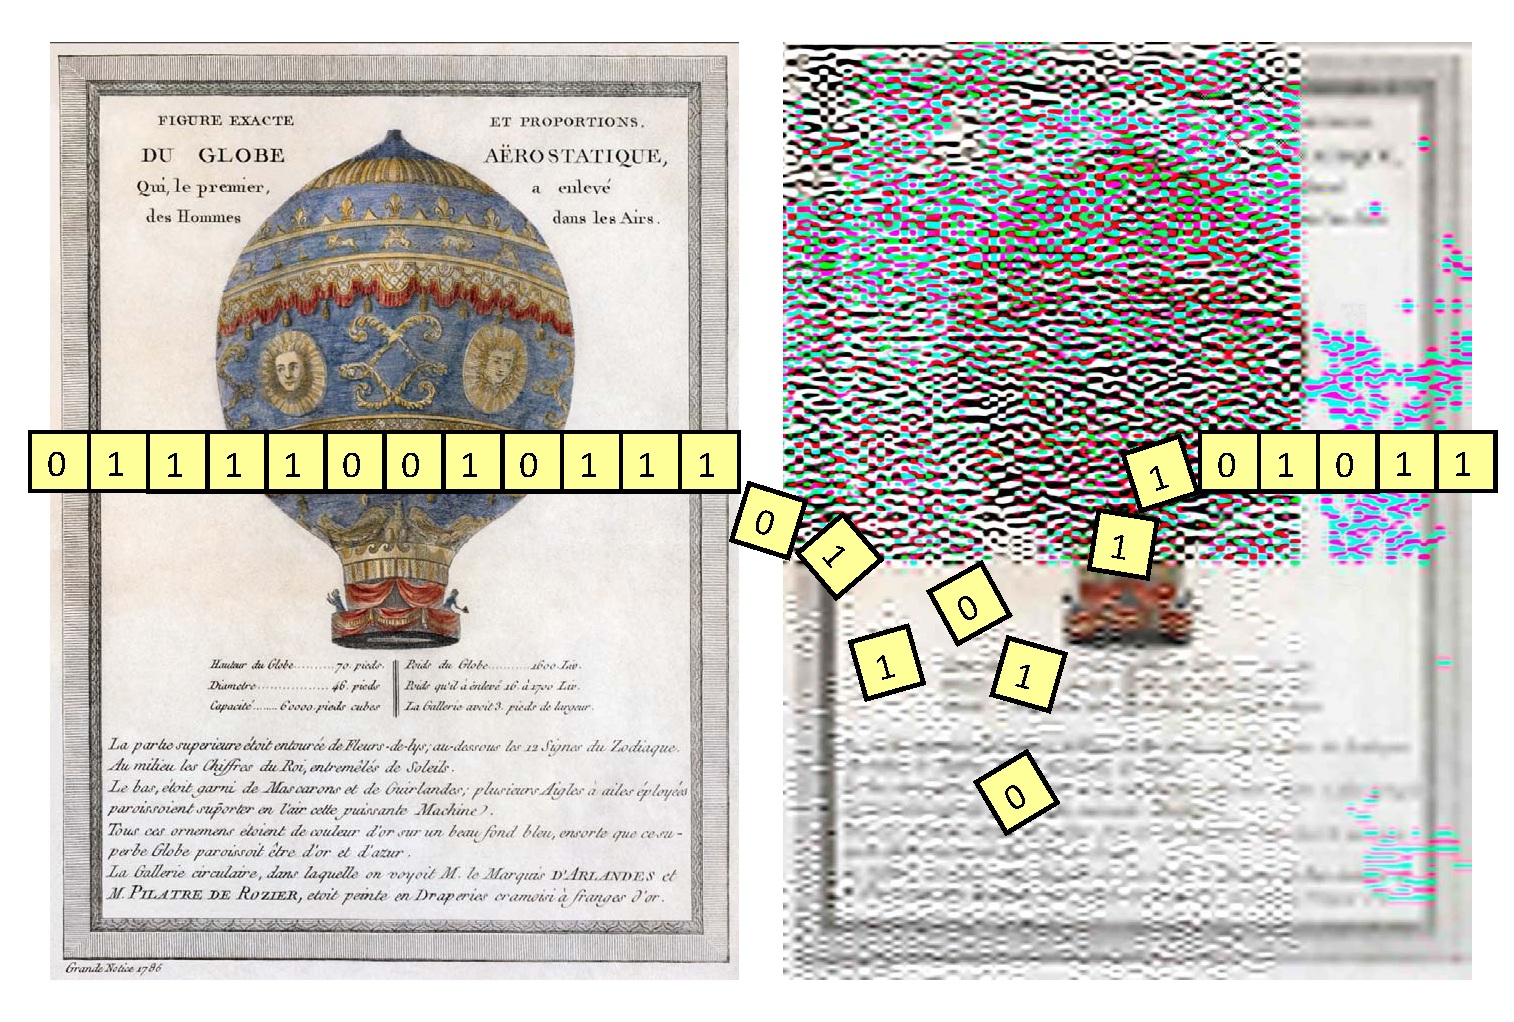 FIGURE EXACTE ET PROPORTIONS.
DU GLOBE AËROSTATIQUE,
Qui, le premier, a enlevé
des Hommes dans les Airs.
0 1 1 1 1 0 0 1 0 1 1 1
0 1 1 0 1 0 1 1
1 0 1 0 1 1
Hauteur du Globe..........70. pieds.
Diametre.................46. pieds
Capacité.......60000. pieds cubes
Poids du Globe..........1600. Liv.
Poids qu'il à énlevé 16. à 1700 Liv.
La Gallerie avoit 3. pieds de largeur.
La partie superieure étoit entourée de Fleurs-de-lys; au-dessous les 12 Signes du Zodiaque.
Au milieu les Chiffres du Roi, entremêlés de Soleils.
Le bas, étoit garni de Mascarons et de Guirlandes; plusieurs Aigles à ailes éployées
paroissoient supórter en l'air cette puissante Machine).
Tous ces ornemens étoient de couleur d'or sur un beau fond bleu, ensorte que ce su-
perbe Globe paroissoit être d'or et d'azur.
La Gallerie circulaire, dans laquelle on voyoit M. le Marquis D'ARLANDES et
M. PILATRE DE ROZIER, etoit peinte en Draperies cramoisi à franges d'or.
Grande Notice 1786